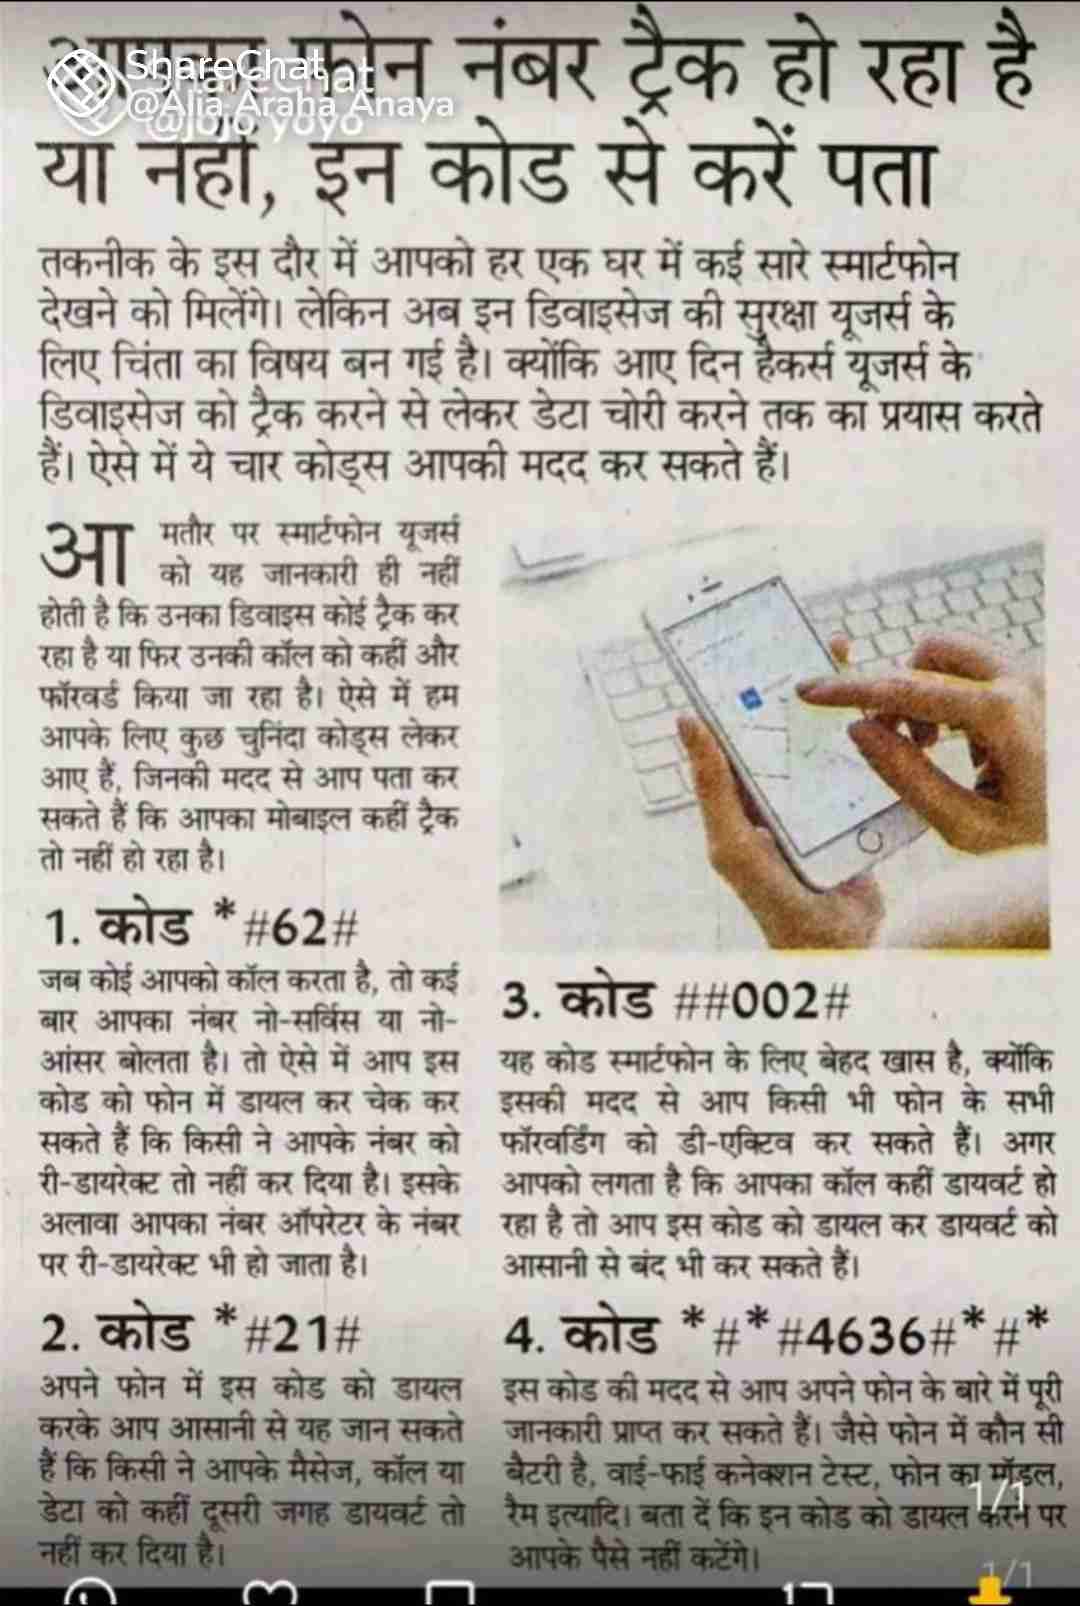 आपका फोन नंबर ट्रैक हो रहा है
या नहीं, इन कोड से करें पता
ShareChat
@Alia Araha Anaya
@jojo yoyo
तकनीक के इस दौर में आपको हर एक घर में कई सारे स्मार्टफोन
देखने को मिलेंगे। लेकिन अब इन डिवाइसेज की सुरक्षा यूजर्स के
लिए चिंता का विषय बन गई है। क्योंकि आए दिन हैकर्स यूजर्स के
डिवाइसेज को ट्रैक करने से लेकर डेटा चोरी करने तक का प्रयास करते
हैं। ऐसे में ये चार कोड्स आपकी मदद कर सकते हैं।
आमतौर पर स्मार्टफोन यूजर्स
को यह जानकारी ही नहीं
होती है कि उनका डिवाइस कोई ट्रैक कर
रहा है या फिर उनकी कॉल को कहीं और
फॉरवर्ड किया जा रहा है। ऐसे में हम
आपके लिए कुछ चुनिंदा कोड्स लेकर
आए हैं, जिनकी मदद से आप पता कर
सकते हैं कि आपका मोबाइल कहीं ट्रैक
तो नहीं हो रहा है।
1. कोड *#62#
जब कोई आपको कॉल करता है, तो कई
बार आपका नंबर नो-सर्विस या नो-
आंसर बोलता है। तो ऐसे में आप इस
कोड को फोन में डायल कर चेक कर
सकते हैं कि किसी ने आपके नंबर को
री-डायरेक्ट तो नहीं कर दिया है। इसके
अलावा आपका नंबर ऑपरेटर के नंबर
पर री-डायरेक्ट भी हो जाता है।
2. कोड *#21#
अपने फोन में इस कोड को डायल
करके आप आसानी से यह जान सकते
हैं कि किसी ने आपके मैसेज, कॉल या
डेटा को कहीं दूसरी जगह डायवर्ट तो
नहीं कर दिया है।
3. कोड ##002#
यह कोड स्मार्टफोन के लिए बेहद खास है, क्योंकि
इसकी मदद से आप किसी भी फोन के सभी
फॉरवर्डिंग को डी-एक्टिव कर सकते हैं। अगर
आपको लगता है कि आपका कॉल कहीं डायवर्ट हो
रहा है तो आप इस कोड को डायल कर डायवर्ट को
आसानी से बंद भी कर सकते हैं।
4. कोड *#*#4636#*#*
इस कोड की मदद से आप अपने फोन के बारे में पूरी
जानकारी प्राप्त कर सकते हैं। जैसे फोन में कौन सी
बैटरी है, वाई-फाई कनेक्शन टेस्ट, फोन का मॉडल,
रैम इत्यादि। बता दें कि इन कोड को डायल करने पर
आपके पैसे नहीं कटेंगे।
1/1
1/1